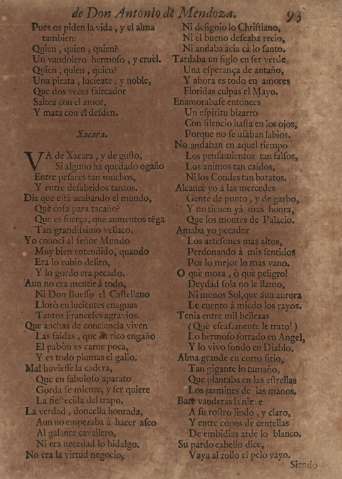 de Don Antonio de Mendoza. 93
Pues os piden la vida, y el alma
tambien.
Quien, quien, quien?
Un vandolero hermoso, y cruel.
Quien, quien, quien?
Una pirata, luciente, y noble,
Que dos vezes salteador
Saltea con el amor,
Y mata con el desden.
Xacara.
VA de Xacara, y de gusto,
Si alguno ha quedado ogaño
Entre pesares tan muchos,
Y entre desabridos tantos.
Diz que està acabando el mundo,
Què cosa para tacaño?
Que es fuerça, que aumentos tẽga
Tan grandissimo vellaco.
Yo conocì al señor Mundo
Muy bien entendido, quando
Era lo rubio delito,
Y lo gordo era pecado.
Aun no era mentir à todo,
Ni Don Bueso el Castellano
Llorò en lucientes enaguas
Tantos Franceses agravios.
Que anchas de conciencia viven
Las faldas, que al rico engaño
El pabòn es carne poca,
Y es todo plumas el gallo.
Mal huviesse la cadera,
Que en fabuloso aparato
Gorda se miente, y ser quiere
La del trapo.
La verdad, doncella honrada,
Aun no empezaba à hazer asco
Al galante cavallero,
Ni era necedad lo hidalgo.
No era la virtud negocio,
Ni designio lo Christiano,
Ni el bueno deseaba recio,
Ni andaba àzia cà lo santo.
Tardaba un siglo en ser verde,
Una esperança de antaño,
Y ahora es todo en amores
Floridas culpas el Mayo.
Enamorabase entonces
Un espiritu bizarro
Con silencio hasta en los ojos,
Porque no se usaban labios.
No andaban en aquel tiempo
Los pensamientos tan falsos,
Los animos tan caidos,
Ni los Condes tan baratos.
Alcancè yo à las mercedes
Gente de punto, y de garbo,
Y no tienen yà mas honra,
Que los montes de Palacio.
Amaba yo pecador
Los artesones mas altos,
Perdonando à mis sentidos
Por lo mejor lo mas vano.
O què moza, ò què peligro!
Deydad sola no le llamo,
Ni menos Sol, que aun aurora
Le cuento à miedo los rayos.
Tenia entre mil bellezas
(Què escasamente le trato!)
Lo hermoso forrado en Angel,
Y lo vivo fondo en Diablo.
Alma grande en corto sitio,
Tan gigante lo tamaño,
Que plantaba en las estrellas
Los jazmines de las manos.
A su rostro lindo, y claro,
Y entre copos de centellas
De embidia arde lo blanco.
Su pardo cabello dice,
Vaya al rollo el pelo vayo.
Siendo